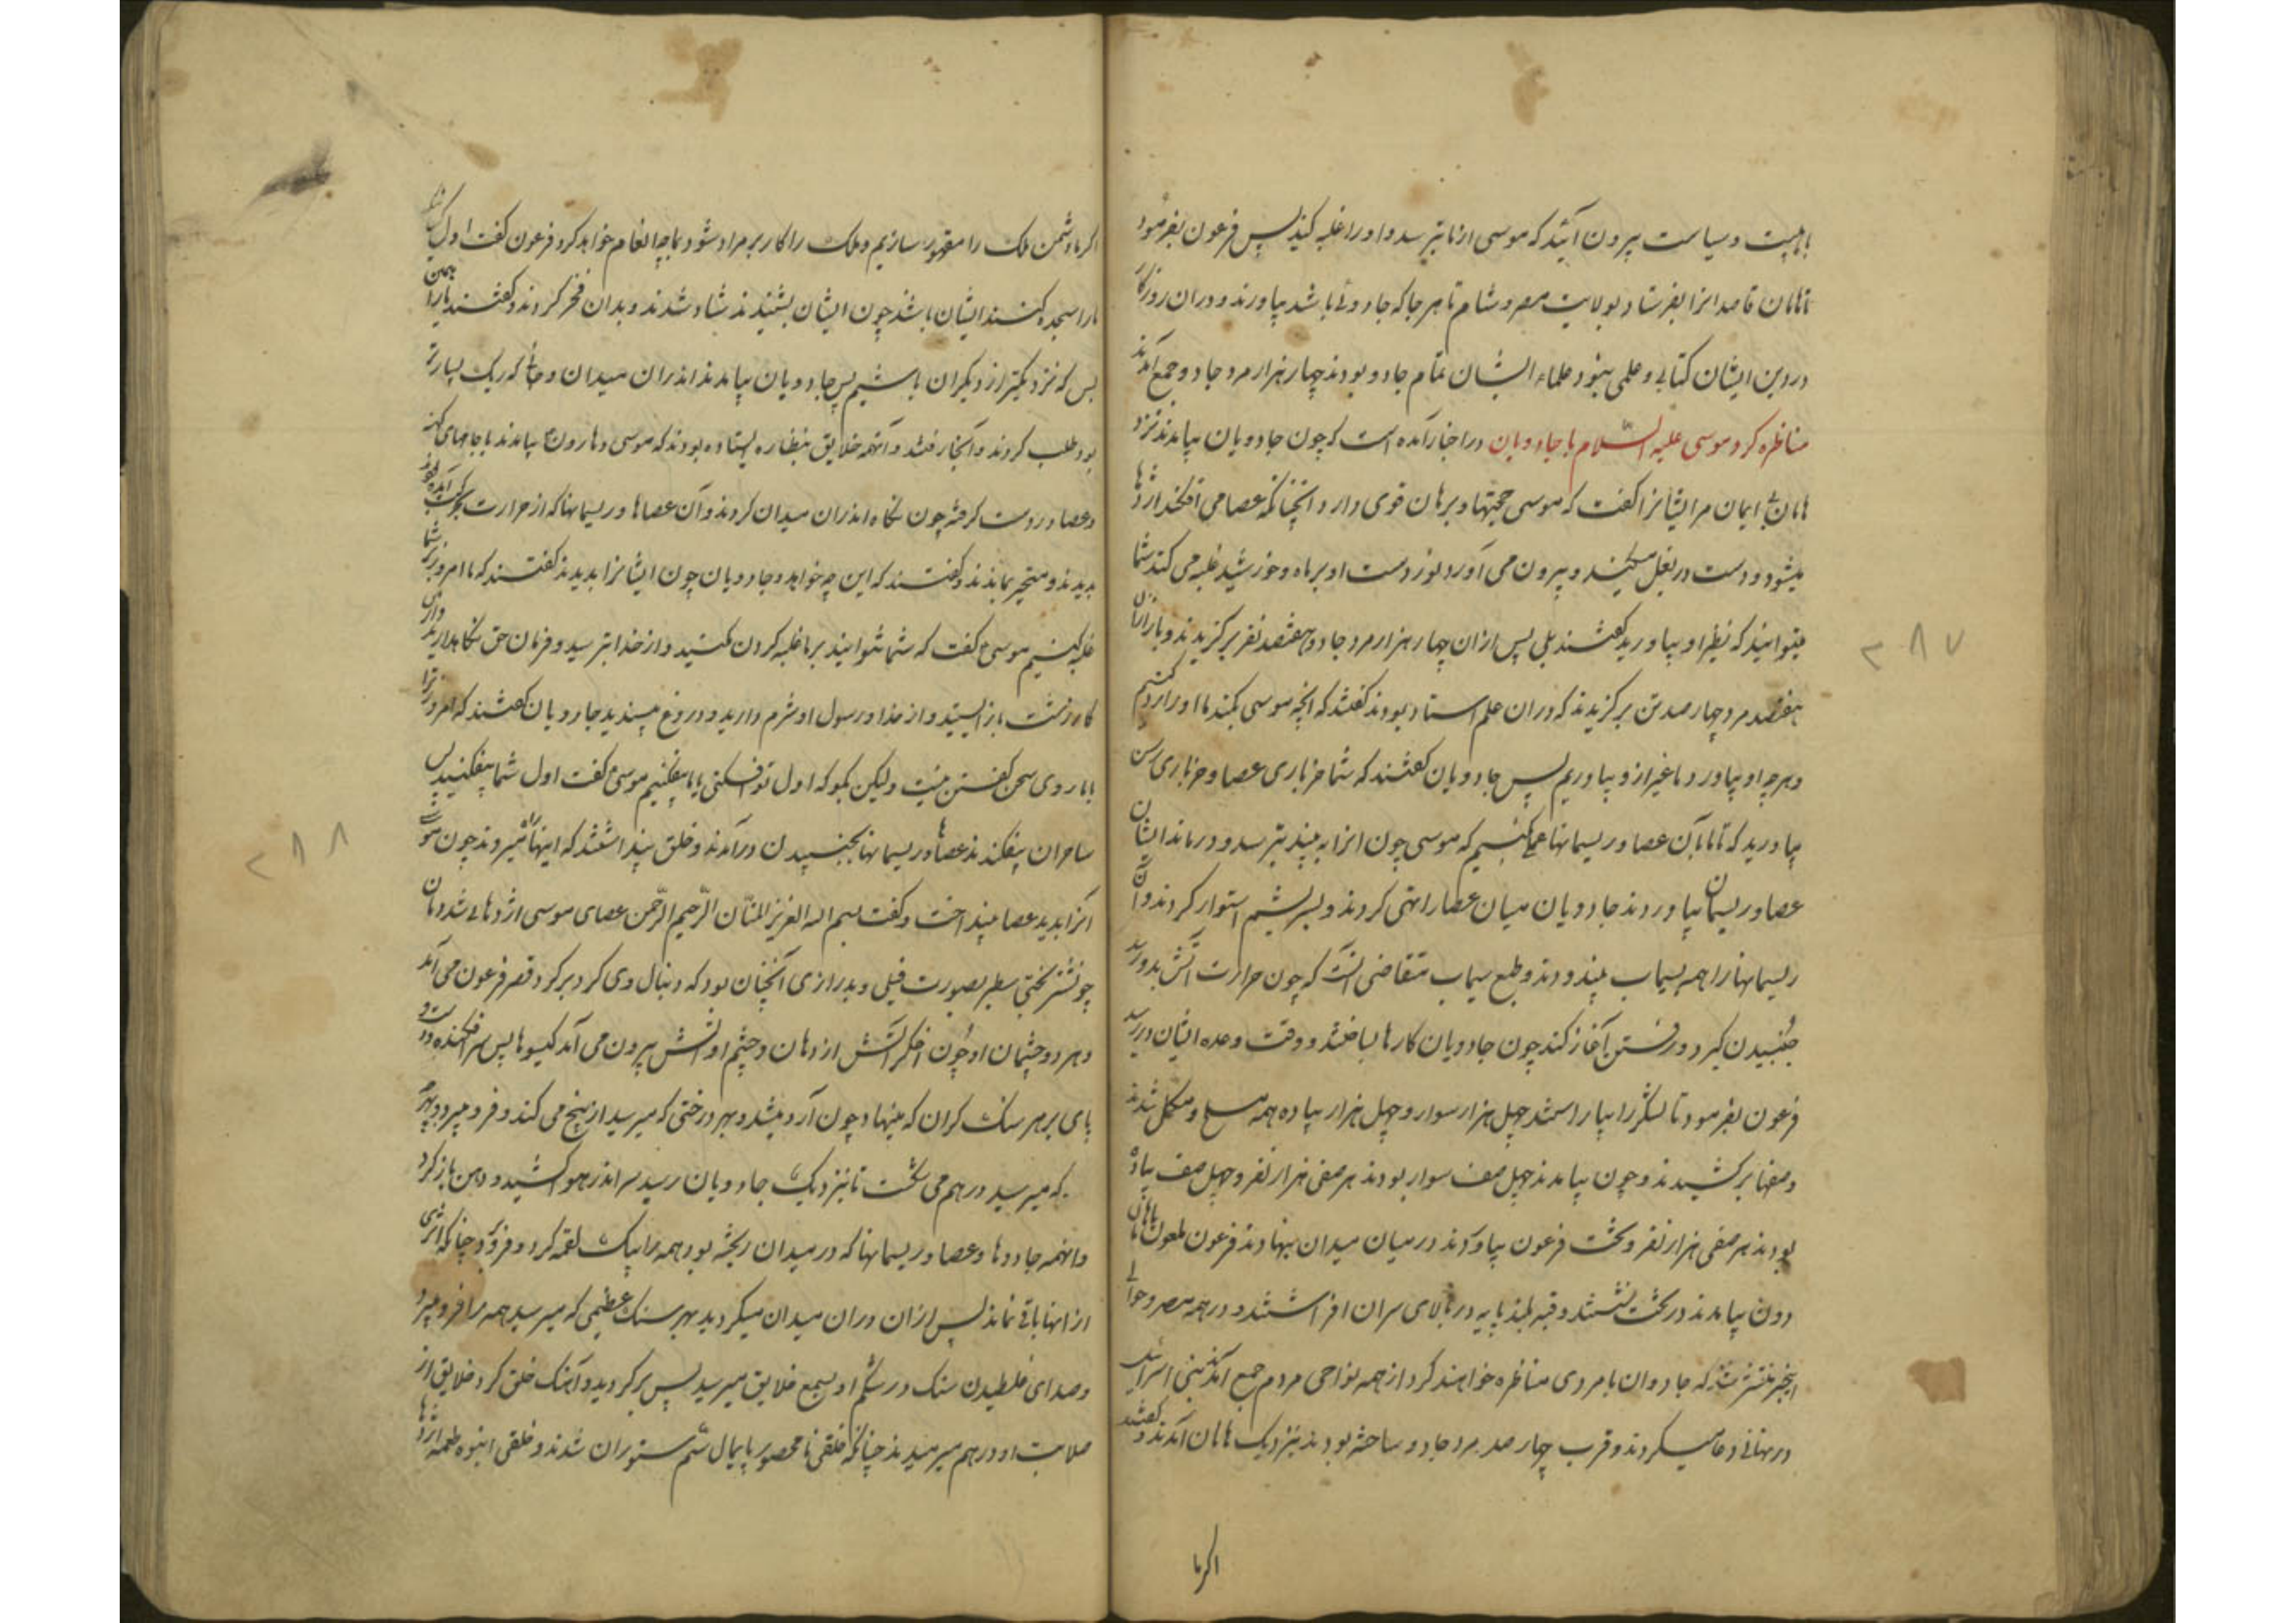 باهیبت و سیاست بیرون آئید که موسی از ما بترسد و او را غلبه کنید پس فرعون بفرمود
تا هامان قاصدانرا بفرستاد بولایت مصر و شام تا هر جا که جادوئی باشد بیاورند و دران روزکار
در دین ایشان کتابی و علمی نبود علماء ایشان تمام جادو بودند چهار هزار مرد جادو جمع آمدند
مناظره کردن موسی علیه السّلام با جادویان در اخبار آمده است که چون جادویان بیامدند نزد
هامان بی ایمان مر ایشانرا کفت که موسی حجتها و برهان قوی دارد آنچنانکه عصا می افکند اژدها
میشود و دست در بغل میکند و بیرون می آورد نور دست او بر ماه و خورشید غلبه می کند شما
میتوانید که نظیر او بیاورید کفتند بلی پس ازان چهار هزار مرد جادو هفتصد نفر برکزیدند و باز ازان
هفتصد مرد چهار صد تن برکزیدند که دران علم استاد بودند کفتند که آنچه موسی بکند ما او را رد کنیم
و هر چه او بیاورد ما غیر ازو بیاوریم پس جادویان کفتند که شما خرباری عصا و خرباری رسن
بیاورید که تا ما بآن عصا و ریسمانها عمل کنیم که موسی چون انرا به بیند بترسد و درماند ایشان
عصا و ریسمان بیاوردند جادویان میان عصا را تهی کردند و بسریشم استوار کردند و آن
ریسمانها را همه بسیماب بیندودند و طبع سیماب متقاضی آنست که چون حرارت آتش بدو رسد
جنبیدن کیرد و رفتن آغاز کند چون جادویان کارها بساختند و وقت وعده ایشان در رسید
فرعون بفرمود تا لشکر را بیاراستند چهل هزار سوار و چهل هزار پیاده همه مسلح و مکمل شدند
و صفها برکشیدند و چون بیامدند چهل صف سوار بودند هر صفی هزار نفر و چهل صف پیاده
بودند هر صفی هزار نفر و تخت فرعون بیاوردند در میان میدان بنهادند فرعون ملعون با هامان
دون بیامدند در تخت نشستند و قبه بلند پایه در بالای سران افراشتند و در همه مصر و حوالی
اینخبر منتشر شد که جادوان با مردی مناظره خواهند کرد از همه نواحی مردم جمع آمدند بنی اسرائیل
در نهانی دعا میکردند و قرب چهار صد مرد جادو ساخته بودند بنزدیک هامان آمدند و کفتند
اکر ما
اکر ما دشمن ملک را مقهور سازیم و ملک را کار بر مراد شود بما چه انعام خواهد کرد فرعون کفت اول
ما را سجده کنند ایشان باشند چون ایشان بشنیدند شاد شدند و بدان فخر کردند و کفتند ما را همین
بس که نزدیکتر از دیکران باشیم پس جادویان بیامدند اندران میدان و جائی که ریک بسیار تر
بود طلب کردند و آنجا رفتند و آنهمه خلایق بنظاره ایستاده بودند که موسی و هارون بیامدند با جامهای کهنه
و عصا در دست کرفته چون نکاه اندران میدان کردند و آن عصاها و ریسمانها که از حرارت
بدیدند و متحیر بماندند و کفتند که این چه خواهد و جادویان چون ایشانرا بدیدند کفتند که ما امروز بر شما
غلبه کنیم موسی کفت که شما نتوانید بر ما غلبه کردن مکنید و از خدا بترسید و فرمان حق نکاه دارید
کار زشت باز ایستید و از خدا و رسول او شرم دارید و دروغ مبندید جادویان کفتند که امروز ترا
با ما روی سخن کفتن نیست ولیکن بکو که اول تو افکنی یا ما بیفکنیم موسی کفت اول شما بیفکنید پس
ساحران بیفکندند عصاها و ریسمانها بجنبیدن درآمدند و خلق پنداشتند که اینها میروند چون موسی
آنرا بدید عصا بینداخت و کفت بسم الله العزیز المنّان الرّحیم الرّحمن عصای موسی اژدهائی شد دمان
چو شتر بختی سطبر بصورت فیل و بدرازی آنچنان بود که دنبال وی کرد بر کرد قصر فرعون می آمد
و هر دو چشمان او چون اخکر آتش از دهان و چشم او آتش بیرون می آمد کیسوها پس سر افکنده
پای بر هر سنک کران که مینهاد چون آرد میشد و بهر درختی که میرسید از بیخ می کند و فرو میبرد و بهر
که میرسید درهم می شکست تا بنزدیک جادویان رسید سر اندر هوا کشید و دهن باز کرد
و آنهمه جادوها و عصا و ریسمانها که در میدان ریخته بود همه را بیک لقمه کرد و فرو برد چنانکه اثری
از انها باقی نماند پس ازان دران میدان میکردید بهر سنک عظیمی که میرسید همه را فرو میبرد
و صدای غلطیدن سنک در شکم او بسمع خلایق میرسید پس برکردید و آهنک خلق کرد خلایق از
صلابت او درهم میرمیدند چنانکه خلقی نامحصور پایمال سُم ستوران شدند و خلقی انبوه طعمه اژدها
۲۸۷
۲۸۸